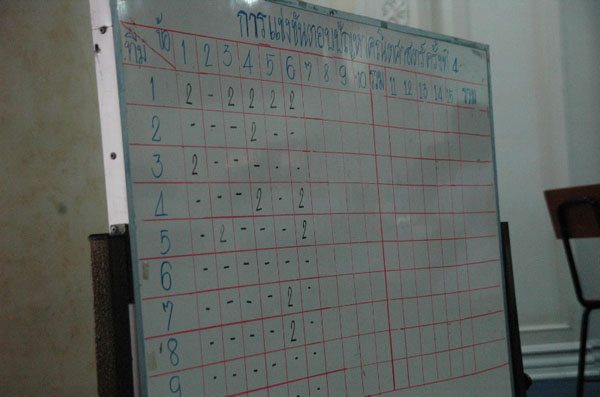 การแข่งขันตอบปัญหาคณิตศาสตร์ ครั้งที่ 4
ข้อ 1 2 3 4 5 6 7 8 9 10 รวม 11 12 13 14 15 รวม
ทีม
1 2 - 2 2 2 2
2 - - - 2 - -
3 2 - - - - -
4 - - - 2 - 2
5 - 2 - - - 2
6 - - - - - -
7 - - - - 2 -
8 - - - - 2 -
9 - - - - - -